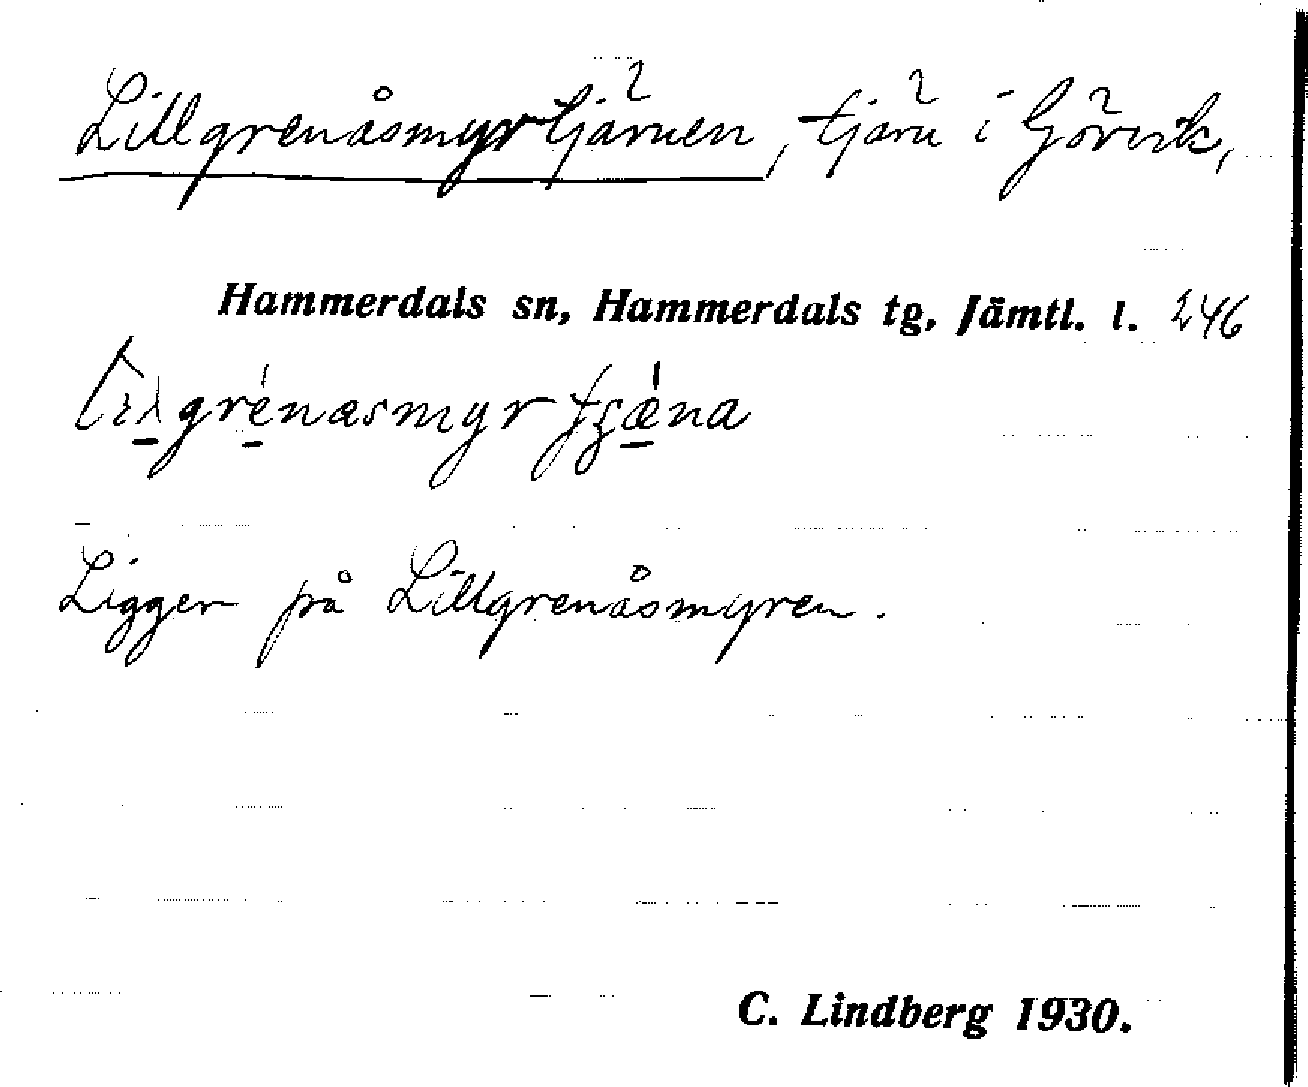 Lillgrenåsmyrtjärnen, tjärn i Görvik,
Hammerdals sn, Hammerdals tg, Jämtl. l. 246
Ligger på Lillgrenåsmyren.
C. Lindberg 1930.